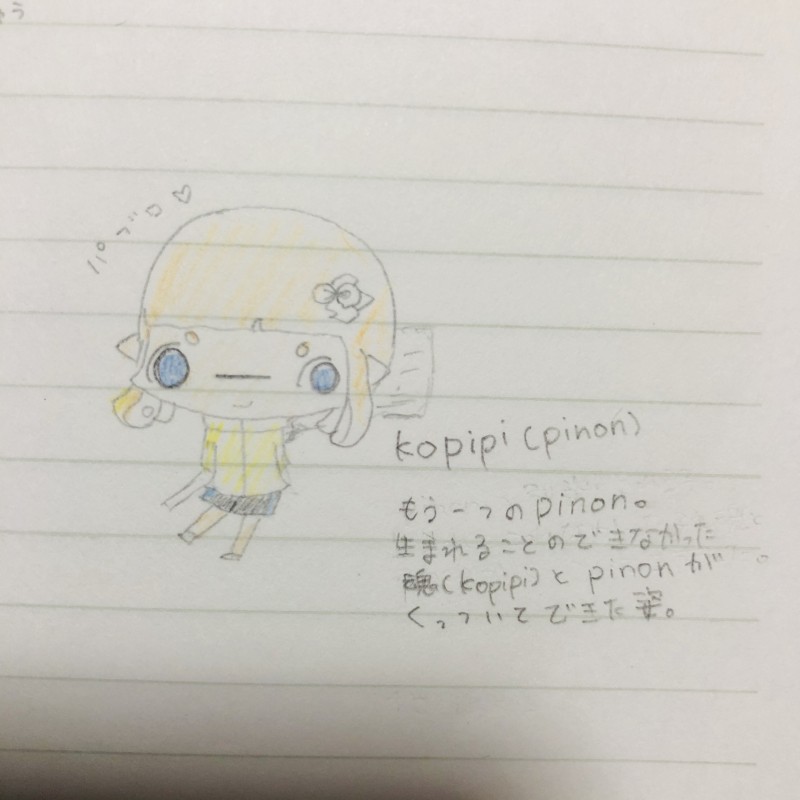 パブロ♡
kopipi(pinon)
もう一つのpinon。
生まれることのできなかった
魂(kopipi)とpinonが
くっついてできた姿。